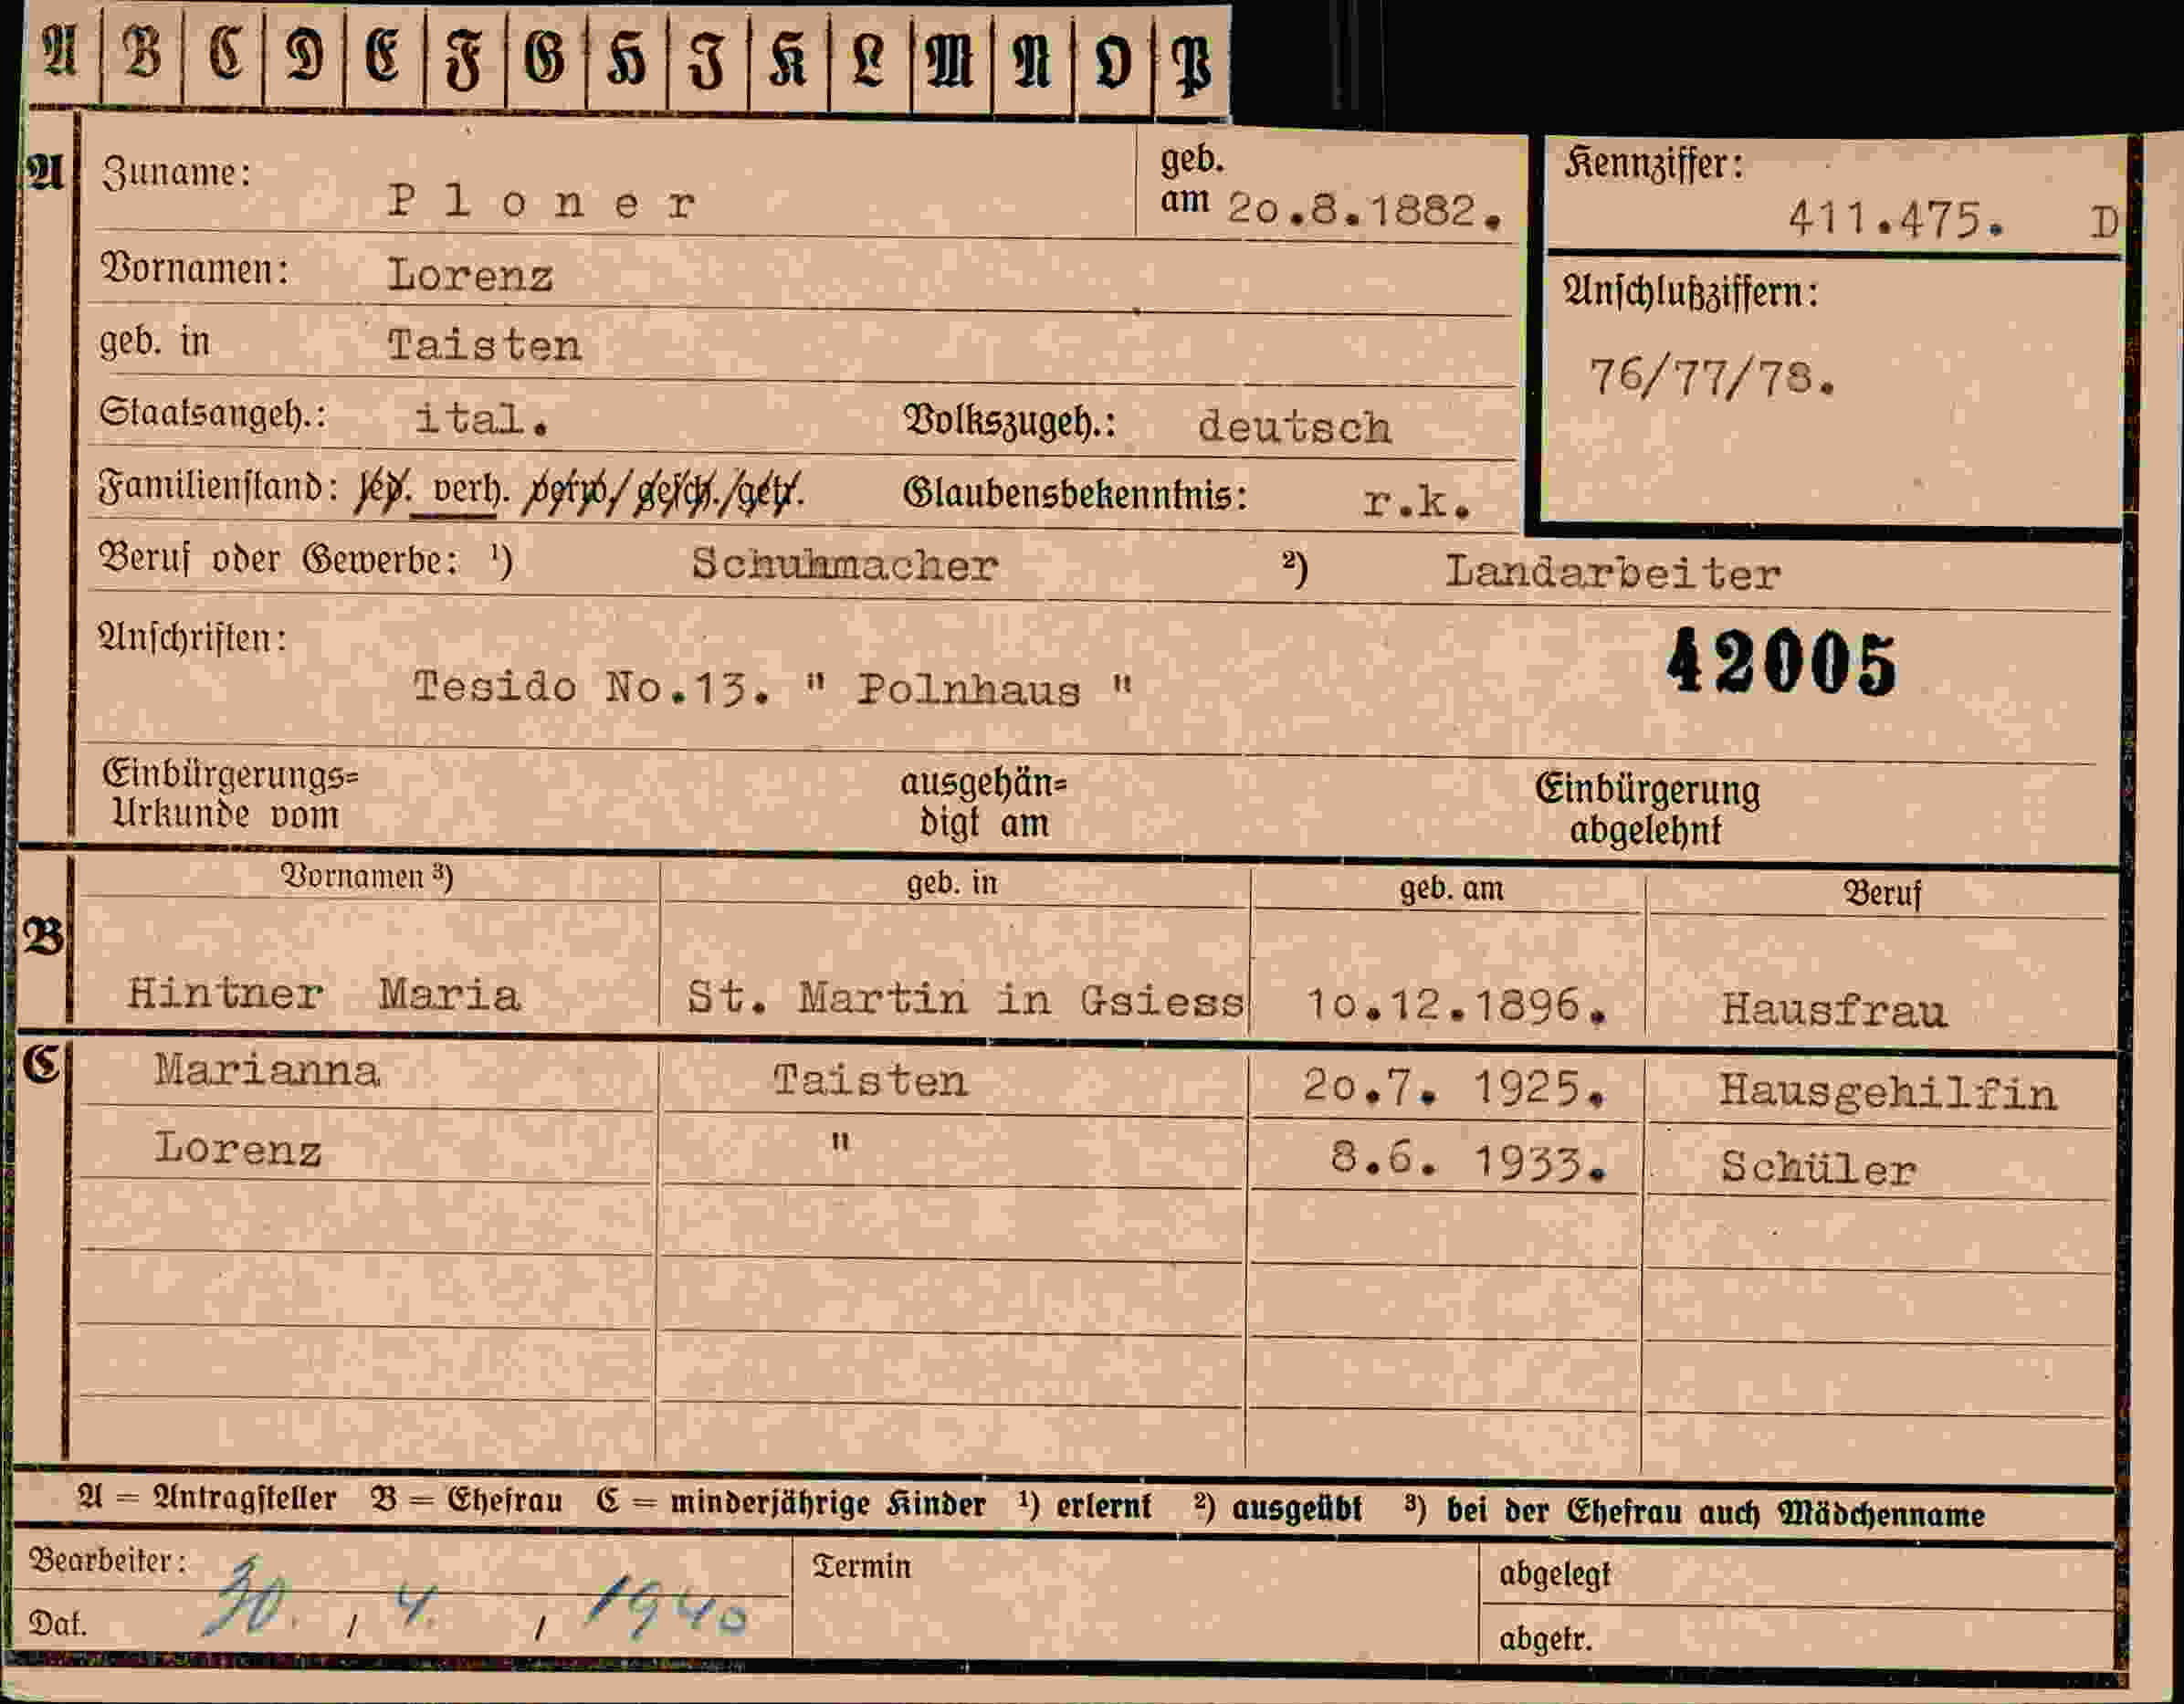 A B C D E F G H J K L M N O P
A Zuname: Ploner geb. am 20.8.1882. Kennziffer: 411.475. D
Vornamen: Lorenz
geb. in Taisten
Anschlußziffern:
76/77/78.
Staatsangeh.: ital. Volkszugeh.: deutsch
Familienstand: led. verh. verw./gesch./getr. Glaubensbekenntnis: r.k.
Beruf oder Gewerbe: ¹) Schuhmacher ²) Landarbeiter
Anschriften:
42005
Tesido No.13. " Polnhaus "
Einbürgerungs= ausgehän= Einbürgerung
Urkunde vom digt am abgelehnt
B Vornamen ³) geb. in geb. am Beruf
Hintner Maria St. Martin in Gsiess 10.12.1896. Hausfrau
C Marianna Taisten 20.7. 1925. Hausgehilfin
Lorenz " 8.6. 1933. Schüler
A = Antragsteller B = Ehefrau C = minderjährige Kinder ¹) erlernt ²) ausgeübt ³) bei der Ehefrau auch Mädchenname
Bearbeiter: Termin abgelegt
Dat. 30. / 4. / 1940 abgetr.